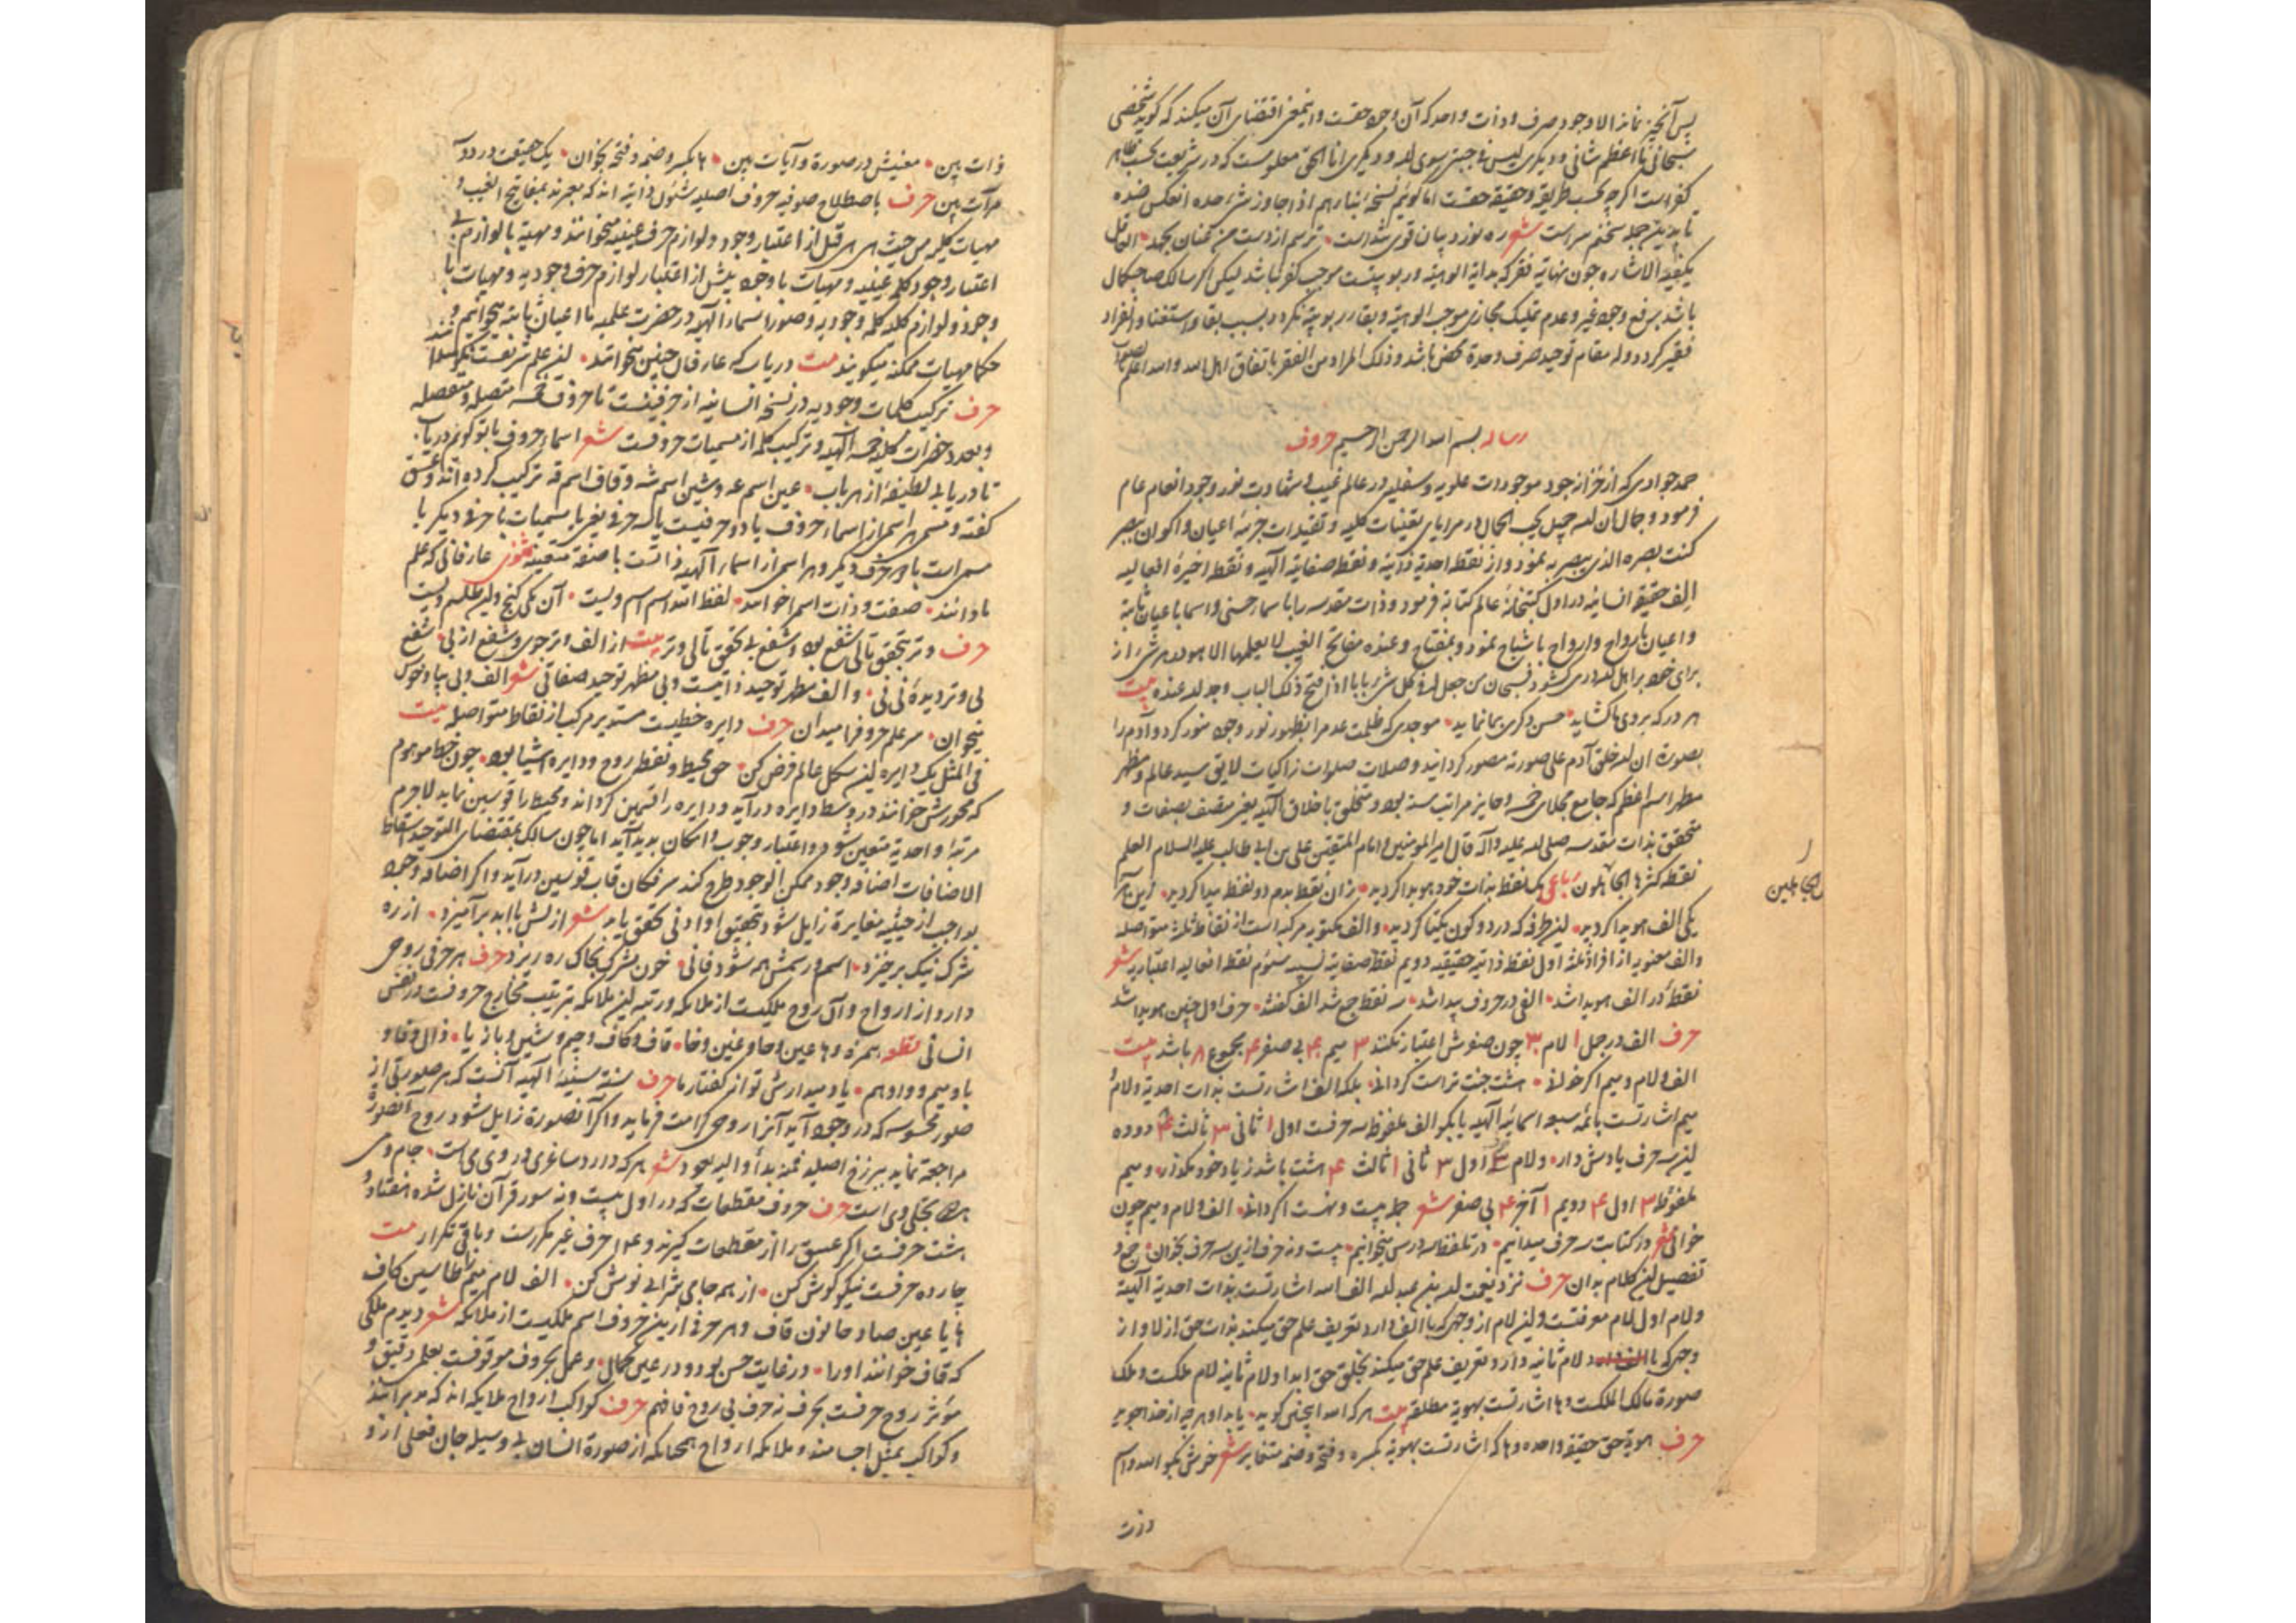 پس آنچیز نماند الا وجود صرف و ذات واحد که آن وجود حقست و اینمعنی اقتضای آن میکند که گوید شخصی
سبحانی ما اعظم شانی و دیگری لیس فی جبتی سوی الله و دیگری انا الحق معلومست که در شریعت بحسب ظاهر
کفر است اگر چه بحسب طریقه و حقیقة حقست اما گوئیم
شعر
باشد برفع وجود غیر و عدم تملیک مجازی موجب الوهیة و بقا در ربوبیة نگردد بسبب بقا و استغنا و انفراد
فقیر گردد و له مقام توحید صرف و وحدة محض باشد و ذلک المراد من الفقر باتفاق اهل الله و الله اعلم
رساله بسم الله الرحمن الرحیم حروف
حمد جوادی که از خزاین جود موجودات علویه و سفلیه در عالم غیب و شهادت بنور وجود انعام عام
فرمود و جمال ان الله جمیل یحب الجمال در مرایای تعینات کلیه و تقیدات جزئیه اعیان و اکوان ببصر
کنت بصره الذی یبصر به بنمود و از نقطه احدیة ذاتیة و نقطه صفاتیة الهیه و نقطه اخیرة افعالیه
الف حقیقة انسانیه در اول کتبخانه عالم کتابة فرمود و ذات مقدسه را با سماء حسنی و اسما باعیان ثابتة
و اعیان بارواح و ارواح باشباح بنمود و بمفتاح و عنده مفاتح الغیب لا یعلمها الا هو در شئ از
برای خود بر اهل الله در می‌گشود فسبحان من جعل له فی کل شئ بابا اذا فتح ذلک الباب وجد الله عنده بیت
هر در که بروی ما گشاید • حسن دگری بما نماید • موجدی که ظلمت عدم را بظهور نور وجود منور کرد و آدم را
بصورة ان الله خلق آدم علی صورته مصور گردانید و صلات صلوات زاکیات لایق سید عالم و مظهر
مظهر اسم اعظم که جامع مجلای خمسه و حایز مراتب سته بود و متخلق باخلاق الهیه یعنی متصف بصفات و
متحقق بذات مقدسه صلی الله علیه و آله قال امیر المؤمنین و امام المتقین علی بن ابی طالب علیه السلام العلم
نقطة کثرها الجاهلون رباعی یک نقطه بذات خود هویدا گردید • زان نقطه بدم دو نقطه پیدا گردید • زین هر سه
یکی الف هویدا گردید • این طرفه که در دو کون یکتا گردید • و الف مکتوب مرکب است از نقاط ثلثه متواصله
و الف معنویه از افراد ثلثه اول نقطه ذاتیه حقیقیه دویم نقطه صفاتیه نسبیه سئوم نقطه افعالیه اعتباریه شعر
نقطه در الف هویدا شد • الفی در حروف پیدا شد • سه نقطه جمع شد الف گفتند • حرف اول چنین هویدا شد
حرف الف در جمل ۱ لام ۳۰ چون صفرش اعتبار نکنند ۳ میم ۴۰ بی صفر ۴ مجموع ۸ باشد بیت
الف و لام و میم اگر خوانی • هشت جنت تراست گردانی • بلکه الف اشارتست بذات احدیة و لام و
میم اشارتست بائمه سبعه اسمائیه الهیه یا بگو الف ملفوظ سه حرفست اول ۱ ثانی ۳ ثالث
این سه حرف یادش دار • و لام اول ۳ ثانی ۱ ثالث ۴ هشت باشد ز یاد خود مگذار • و میم
ملفوظ اول ۴ دویم ۱ آخر ۴ بی صفر شعر جمله بیست و نهست اگر دانی • الف و لام و میم چون
خوانی شعر در کتابت سه حرف میدانیم • در تلفظ سه درس میخوانیم • بیست و نه حرف ازین سه حرف بخوان • جمع و
تفصیل این کلام بدان حرف نزد نعمت الله بن عبد الله الف الله اشارتست بذات احدیة الهیة
و لام اول لام معرفتست و این لام از وجهی که با الف دارد تعریف علم حق میکند بذات حق ازلا و از
وجهی که با لام ثانیه دارد تعریف علم حق میکند بخلق حق ابدا و لام ثانیه لام ملکست و ملک
صورة مالک الملکست و ها اشارتست بهویة مطلقه بیت هر که الله اینچنین گوید • یابد او هر چه از خدا جوید
حرف هویة حق حقیقة واحده و ها که اشارتست بهویة بکسره و فتحه و ضمه متغایر شعر خوش بگو الله و اسم
ذات
الجاهلین
ذات ببین • معنیش در صورة و آیات ببین • ها بکسر و ضمه و فتحه بخوان • یک حقیقت در دو
مرآت ببین حرف باصطلاح صوفیه حروف اصلیه شئون ذاتیه اند که معبرند بمفاتیح الغیب و
مهیات کلیه من حیث هی هی قبل از اعتبار وجود و لوازم حرف غیبیه میخوانند و مهیة با لوازم بی
اعتبار وجود کلمه غیبیه و مهیات با وجود پیش از اعتبار لوازم حرف وجودیه و مهیات با
وجود و لوازم کلمه وجودیه و صور اسماء الهیه در حضرت علمیه ما اعیان ثابته میخوانیم و
حکما مهیات ممکنه میگویند بیت دریاب که عارفان چنین میخوانند • این علم شریفست
حرف ترکیب کلمات وجودیه در نسخه انسانیه از حرفیست تا حروف خمسه متصله و منفصله
و بعدد حضرات کلیه خمسه الهیه و ترکیب کلمه از مسمیات حروفست شعر اسماء حروف با تو گویم دریاب •
تا دریابی لطیفه از هر باب • عین اسم عه و شین اسم شه و قاف اسم قه ترکیب کرده اند و عشق
گفته و مسمی هر اسمی از اسماء حروف یا دو حرفیست یا سه حرفی یعنی با مسمیات با حرفی دیگر یا
مسمی است با دو حرف دیگر و هر اسمی از اسماء الهیه ذاتست با صفة متعینه مثنوی عارفانی که علم
ما دانند • صفت و ذات اسم خوانند • لفظ الله اسم اسم ویست • آن یکی گنج و این طلسم ویست
حرف وتر بتحقق تالی شفع بود و شفع بی تحقق تالی وتر بیت از الف وتر جوی و شفع از بی • شفع
بی وتر دیده نی نی • و الف مظهر توحید ذاتیست و بی مظهر توحید صفاتی شعر الف و بی بیا و خوش
میخوان • سر علم حروف را میدان حرف دایره خطیست مستدیر مرکب از نقاط متواصله بیت
فی المثل یک دایره این شکل عالم فرض کن • حق محیط و نقطه روح و دایره اشیا بود • چون خط موهوم
که محورش خوانند در وسط دایره درآید و دایره را قسمین گرداند و محیط را قوسین نماید لاجرم
مرتبه واحدیة متعین شود و اعتبار وجوب و امکان پدید آید اما چون سالک بمقتضای التوحید اسقاط
الاضافات اضافه وجود ممکن الوجود طرح کند سر فکان قاب قوسین درآید و اگر اضافه وجود
بواجب از حیثیة مغایرة زایل شود بتحقیق او ادنی تحقق یابد شعر ازلش با ابد برآمیزد • از ره
شرک نیک برخیزد • اسم و رسمش همه شود فانی • خون مشرک بخاک ره ریزد حرف هر حرفی روحی
دارد از ارواح و آن روح ملکیست از ملایکه و رتبه این ملایکه بترتیب مخارج حروفست در نفس
انسانی نظم همزه و ها عین و حا و غین و خا • قاف و کاف و جیم و شین و باز یا • ذال و فا و
با و میم و واو هم • یاد میدارش تو از گفتار ما حرف سنة سنیه الهیه آنست که هر صورتی از
صور محسوسه که در وجود آید آنرا روحی کرامت فرماید و اگر آنصورة زایل شود روح آنصورة
مراجعة نماید ببرزخ اصلیه فمنه بدأ و الیه یعود شعر هر که دارد ساغری در وی می است • جام و می
هم تجلی وی است حرف حروف مقطعات که در اول بیست و نه سور قرآن نازل شده هفتاد و
هشت حرفست اگر عسق را از مقطعات گیرند و ۱۴ حرف غیر مکررست و باقی تکرار بیت
چارده حرفست نیکو گوش کن • از همه جامی شرابی نوش کن • الف لام میم را طا سین کاف
ها یا عین صاد حا نون قاف و هر حرفی از این حروف اسم ملکیست از ملایکه شعر دیدم ملکی
که قاف خوانند او را • در غایت حسن بود و در عین کمال • و عمل بحروف موقوفست بعلم دقیق و
مؤثر روح حرفست بحرف نه حرف بی روح فافهم حرف کواکب ارواح ملایکه اند که مدبرانند
و کواکب بمثل اجسامند و ملایکه ارواح همچنانکه از صورة انسان بی وسیله جان فعلی از او